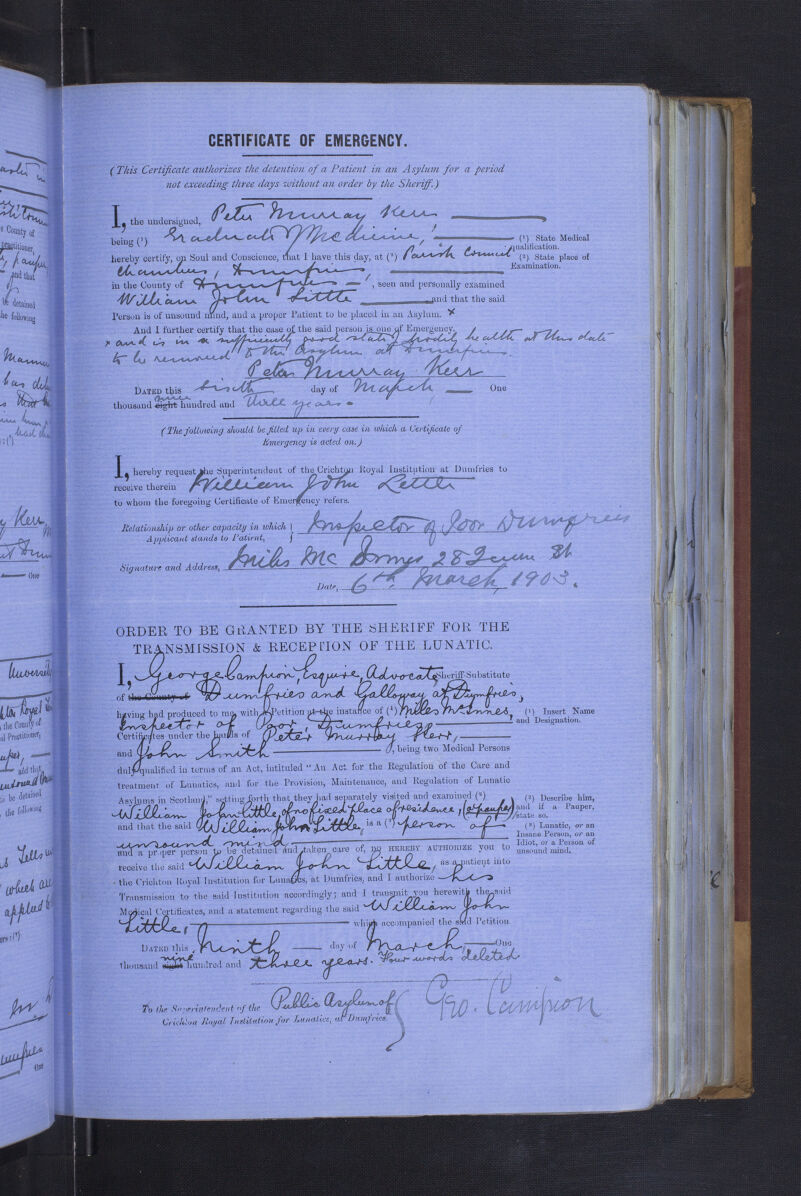 CERTIFICATE OF EMERGENCY.
(This Certificate authorizes the detention of a Patient in an Asylum for a period
not exceeding three days without an order by the Sheriff.)
I, the undersigned, Peter Murray Kerr
being (¹) Graduate of Medicine,
(¹) State Medical
qualification.
hereby certify, on Soul and Conscience, that I have this day, at (²) Parish Council
(²) State place of
Examination.
Chambers, Dumfries
in the County of Dumfries, seen and personally examined
William John Little and that the said
Person is of unsound mind, and a proper Patient to be placed in an Asylum. ×
And I further certify that the case of the said person is one of Emergency.
× and is in a sufficiently good state of bodily health at this date
to be removed to the Asylum at Dumfries.
Peter Murray Kerr
DATED this sixth day of March One
thousand eight nine hundred and three years.
(The following should be filled up in every case in which a Certificate of
Emergency is acted on.)
I, hereby request the Superintendent of the Crichton Royal Institution at Dumfries to
receive therein William John Little
to whom the foregoing Certificate of Emergency refers.
Relationship or other capacity in which
Applicant stands to Patient,
Inspector of Poor Dumfries
Signature and Address, Miles McInnes 28 St
Date, 6th March, 1903.
ORDER TO BE GRANTED BY THE SHERIFF FOR THE
TRANSMISSION & RECEPTION OF THE LUNATIC.
I, George Campion, Esquire, Advocate Sheriff-Substitute
of the County of Dumfries and Galloway at Dumfries,
having had produced to me, with a Petition at the instance of (¹) Miles McInnes,
(¹) Insert Name
and Designation.
Inspector of Poor, Dumfries
Certificates under the hands of Peter Murray Kerr,
and John Smith, being two Medical Persons
duly qualified in terms of an Act, intituled "An Act for the Regulation of the Care and
treatment of Lunatics, and for the Provision, Maintenance, and Regulation of Lunatic
Asylums in Scotland," setting forth that they had separately visited and examined (²)
(²) Describe him,
and if a Pauper,
state so.
William John Little, of no fixed place of residence, (a pauper)
and that the said William John Little, is a (³) person of
(³) Lunatic, or an
Insane Person, or an
Idiot, or a Person of
unsound mind.
unsound mind
and a proper person to be detained and taken care of, DO HEREBY AUTHORIZE you to
receive the said William John Little, as a patient into
the Crichton Royal Institution for Lunatics, at Dumfries, and I authorize his
Transmission to the said Institution accordingly; and I transmit you herewith the said
Medical Certificates, and a statement regarding the said William John
Little, which accompanied the said Petition.
DATED this Ninth day of March, One
thousand eight nine hundred and three years. Four words deleted
To the Superintendent of the Public Asylum of
Crichton Royal Institution for Lunatics, at Dumfries.
Geo. Campion